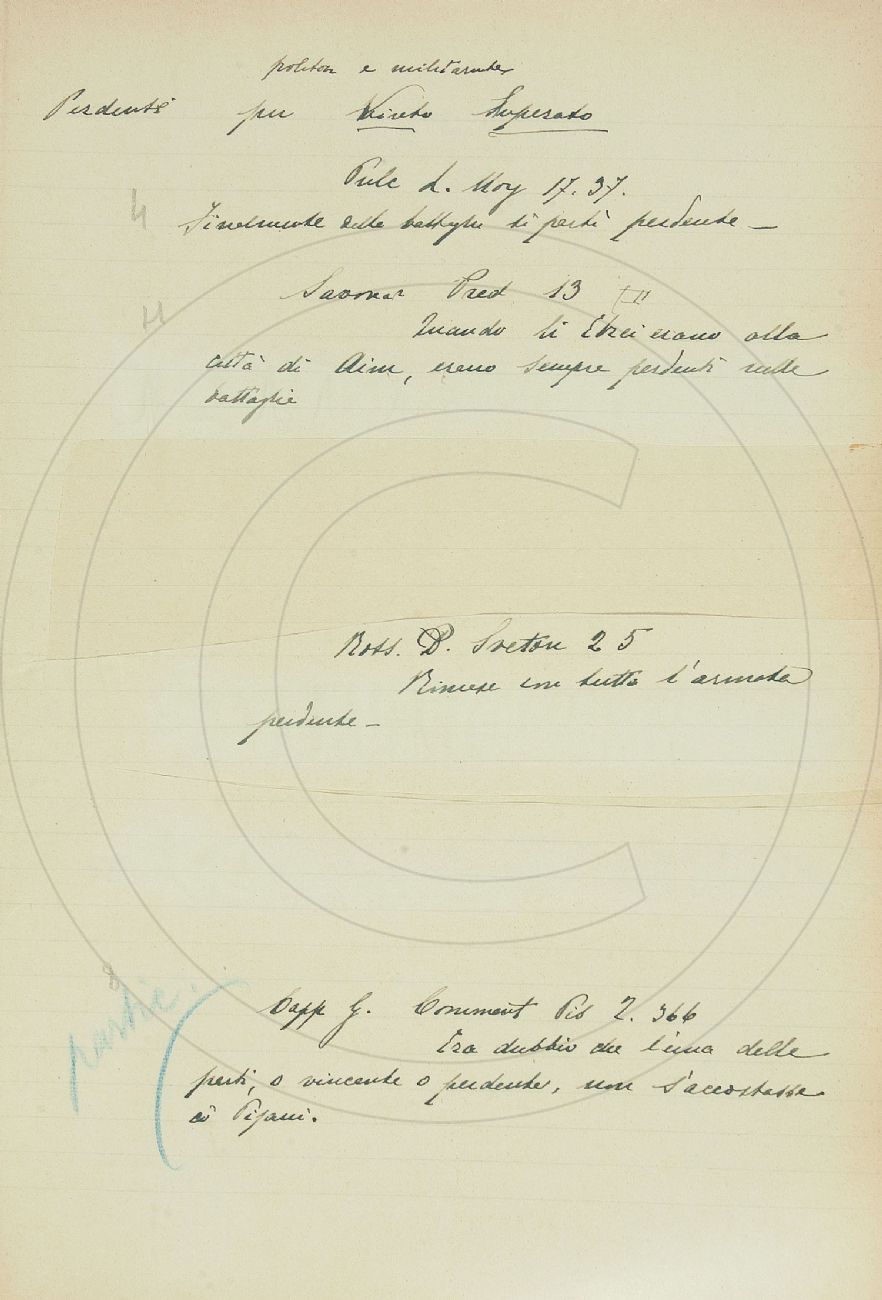 politicam e militarmente
Perdente per Vinto Superato
Pulc L. Morg 17. 37.
H
Finalmente della battaglia si partì perdente —
H
Savonar Pred 13
Quando li Ebrei erano alla
città di Aim, erano sempre perdenti nelle
battaglie
Ross. P. Sveton 2 5
Rimase con tutta l'armata
perdente —
8
partic.
Capp G. Comment Pis 2. 366
Era dubbio che l'una delle
parti, o vincente o perdente, non s'accostasse
co' Pisani.